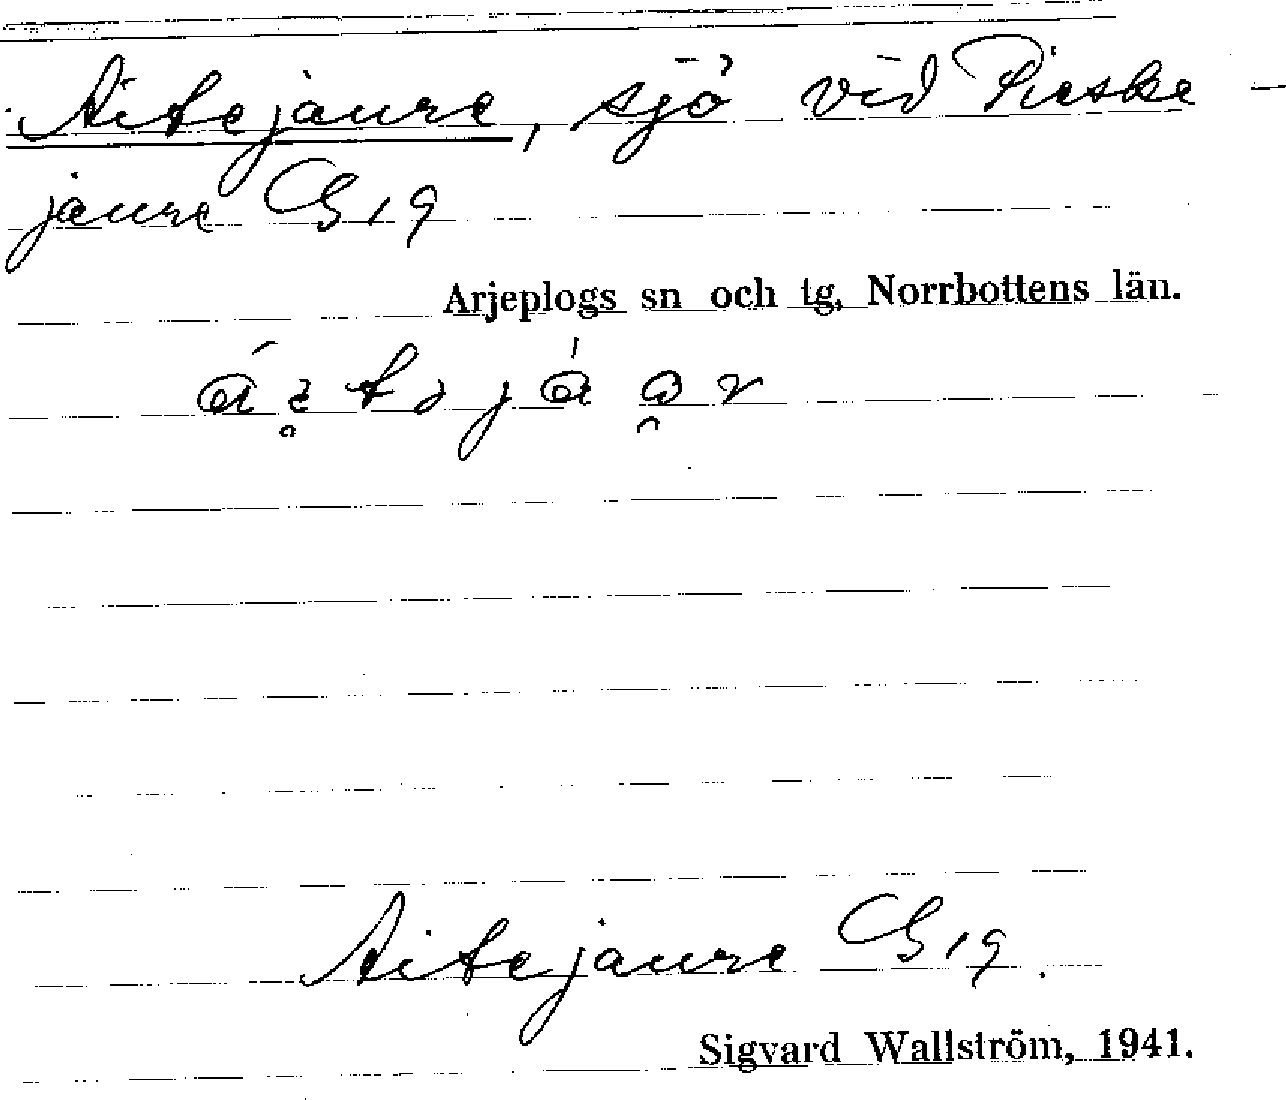 Aitejaure, sjö vid Pieske-
jaure G19
Arjeplogs sn och tg, Norrbottens län.
Aitejaure G19.
Sigvard Wallström, 1941.